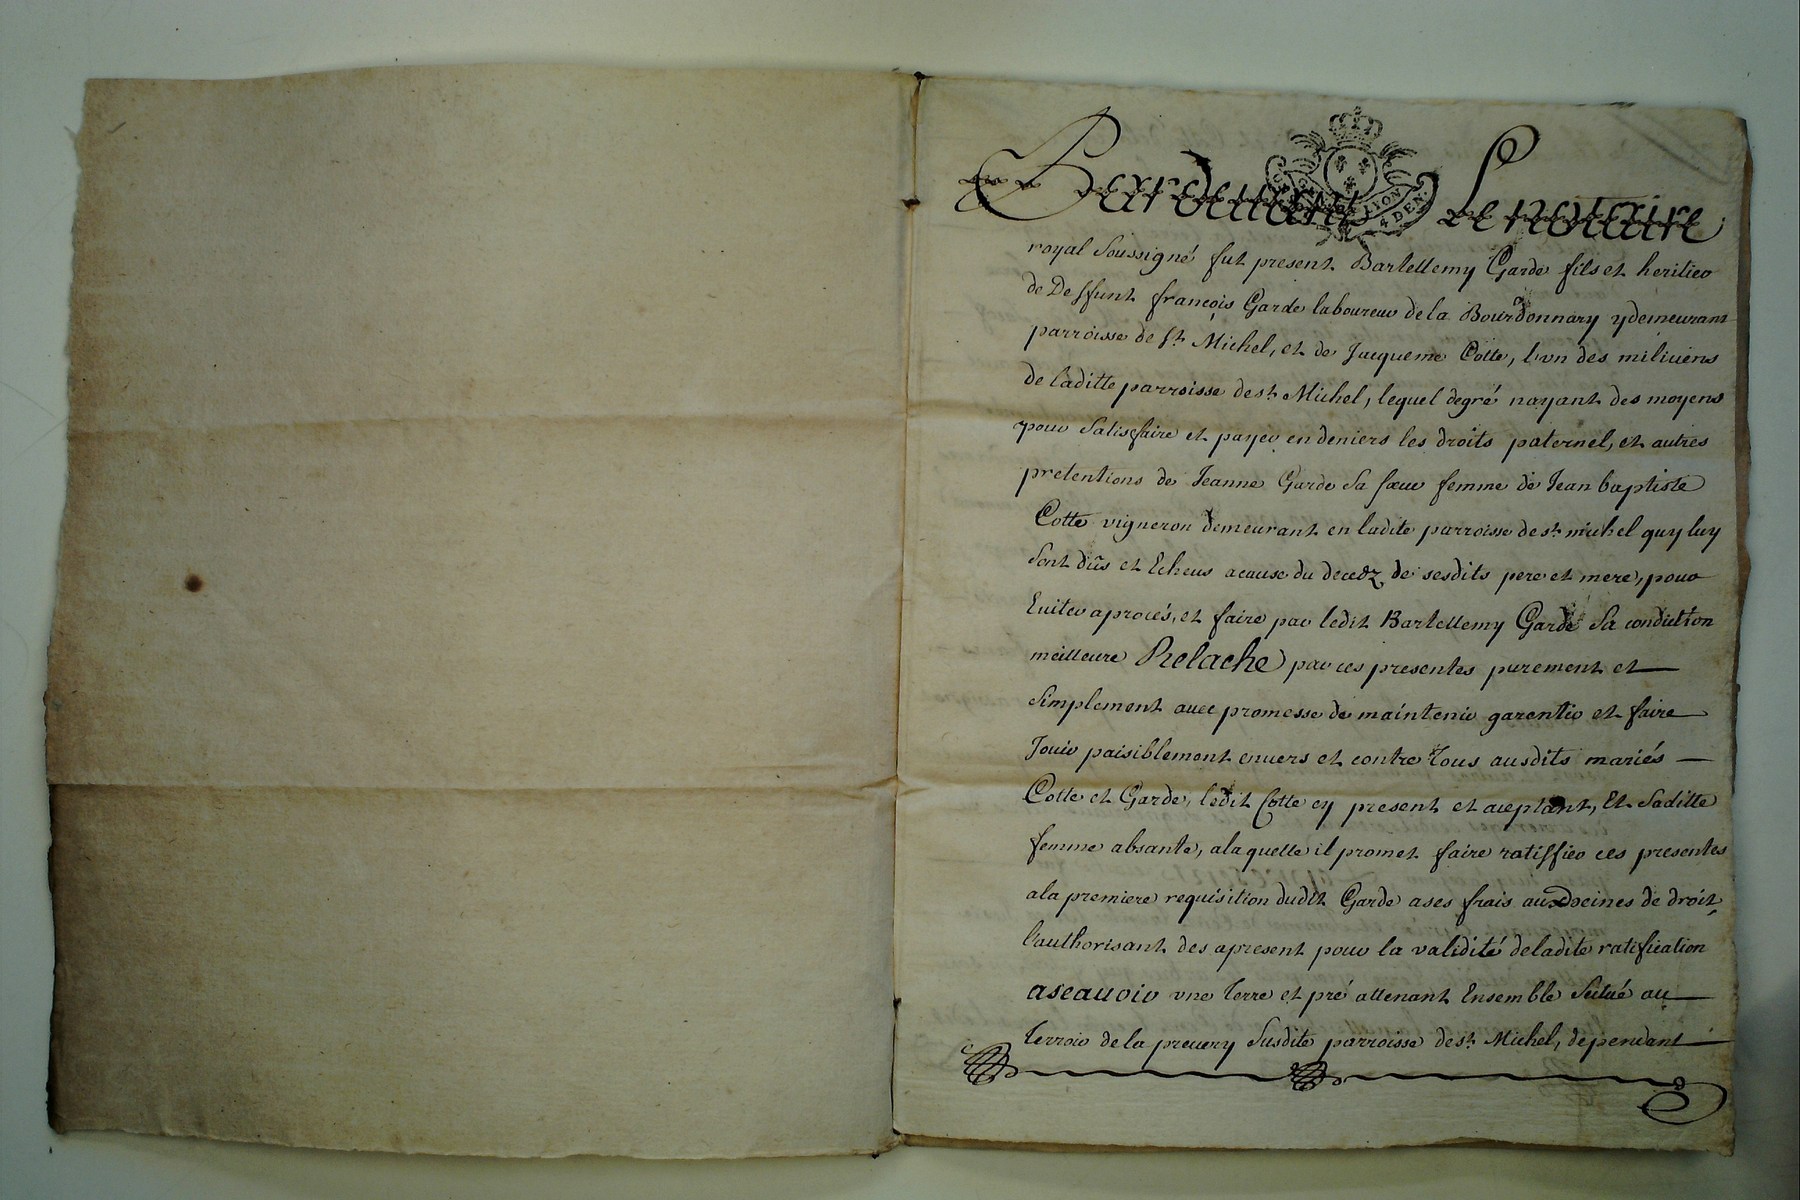 Pardevant Le notaire
LYON
4 DEN.
royal Soussigné fut present Bartellemy Garde fils et heritier
de Deffunt françois Garde laboureur de la Bourdonnary y demeurant
parroisse de St. Michel, et de Jacqueme Cotte, l'vn des miliciens
de laditte parroisse de st. Michel, lequel degré nayant des moyens
pour Satisfaire et payer en deniers les droits paternel, et autres
pretentions de Jeanne Garde Sa sœur femme de Jean baptiste
Cotte vigneron demeurant en ladite parroisse de st. michel quy luy
Sont dûs et Echeus acause du decedz de sesdits pere et mere, pour
Euiter aprocés, et faire par ledit Bartellemy Garde Sa condiction
meilleure Relache par ces presentes purement et
Simplement auec promesse de maintenir garentir et faire
Jouir paisiblement enuers et contre Tous ausdits mariés
Cotte et Garde, ledit Cotte cy present et aceptant, Et Saditte
femme absante, alaquelle il promet faire ratiffier ces presentes
ala premiere requisition dudit Garde ases frais aux peines de droit,
l'authorisant des apresent pour la validité deladite ratification
ascauoir vne Terre et pré attenant Ensemble Scitué au
Terroir de la preuery Susdite parroisse de st. Michel, dependant